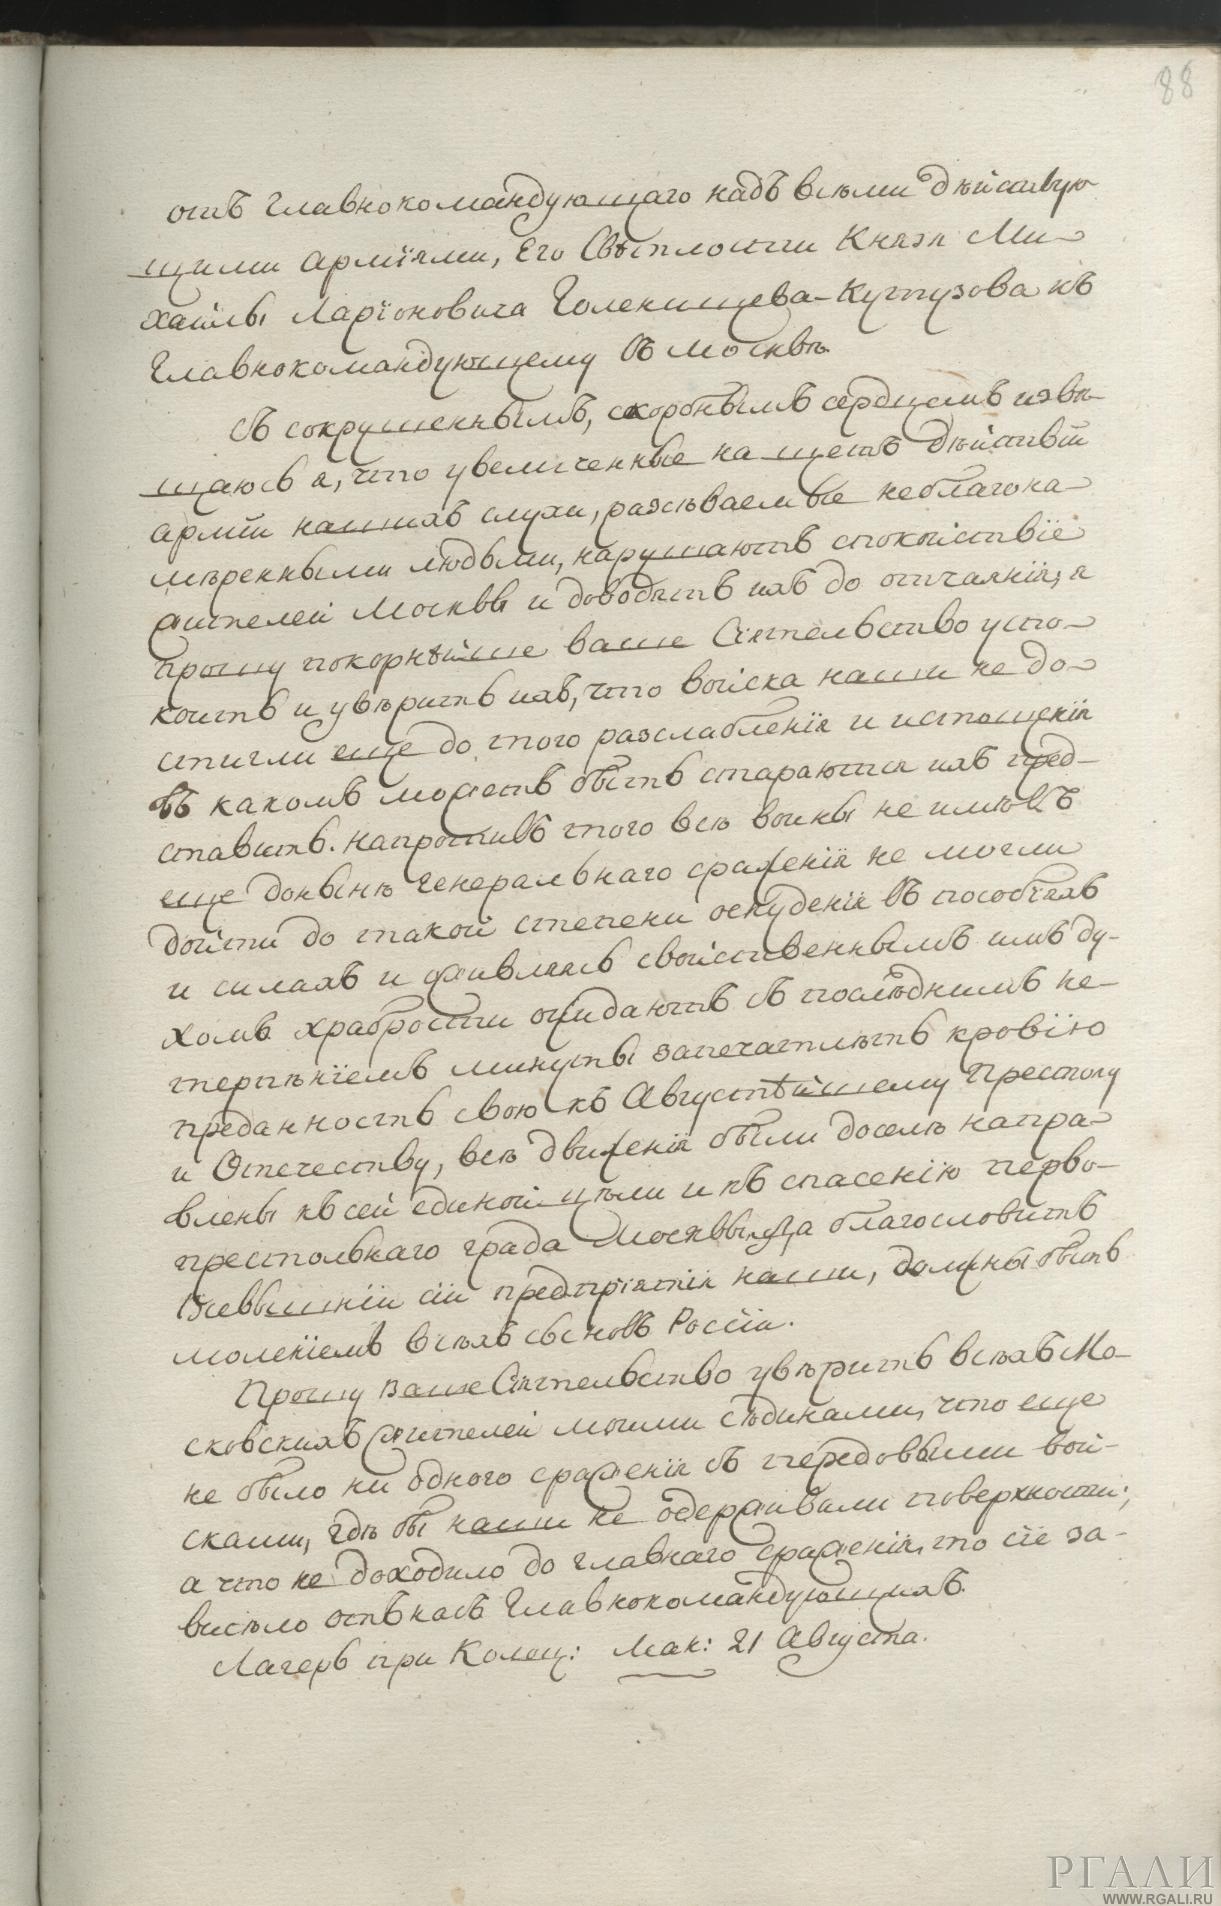 88
отъ Главнокомандующаго надъ всѣми дѣйствую
щими арміями, Его Свѣтлости Князя Ми
хайлы Ларіоновича Голенищева-Кутузова къ
Главнокомандующему въ Москвѣ.
Съ сокрушеннымъ, скорбнымъ сердцемъ извѣ
щаюсь я, что увеличенные на щетъ дѣйствій
арміи нашихъ слухи, разсѣваемые неблагона
мѣренными людьми, нарушаютъ спокойствіе
жителей Москвы и доводятъ ихъ до отчаянія, я
прошу покорнѣйше ваше Сіятельство успо-
коить и увѣрить ихъ, что войска наши не до-
стигли еще до того разслабленія и истощенія
въ какомъ можетъ быть стараются ихъ пред-
ставить. Напротивъ того всѣ воины не имѣвъ
еще донынѣ генеральнаго сраженія не могли
дойти до такой степени оскуденія въ пособіяхъ
и силахъ и оживляясь свойственнымъ имъ ду-
хомъ храбрости ожидаютъ съ послѣднимъ не-
терпѣніемъ минуты запечатлѣть кровію
преданность свою къ Августѣйшему Престолу
и Отечеству, всѣ движенія были доселѣ напра-
влены къ сей единой цѣли и къ спасенію перво-
престольнаго града Москвы, да благословитъ
Всевышній сіи предпріятія наши, должны быть
моленіемъ всѣхъ сыновъ Россіи.
Прошу Ваше Сіятельство увѣрить всѣхъ Мо-
сковскихъ жителей моими сѣдинами, что еще
не было ни одного сраженія съ передовыми вой-
сками, гдѣ бы наши не одерживали поверхности;
а что не доходило до главнаго сраженія, то сіе за-
висѣло отъ насъ Главнокомандующихъ.
Лагерь при Колоц: Мак: 21 Августа.
РГАЛИ
WWW.RGALI.RU